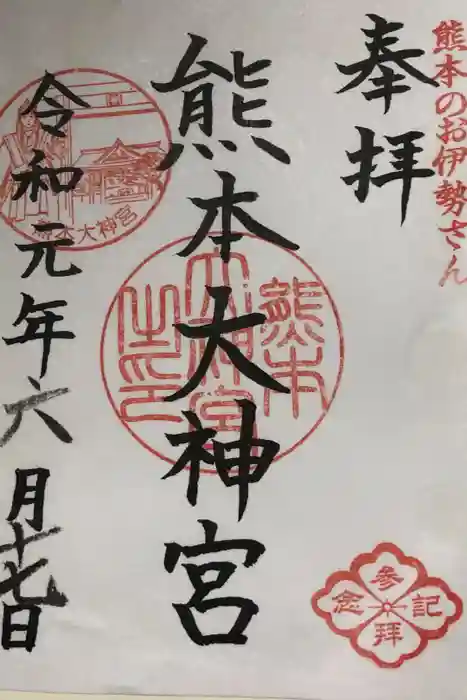 熊本のお伊勢さん
奉拝
熊本大神宮
令和元年六月十七日
熊本大神宮之印
熊本大神宮
参拝記念